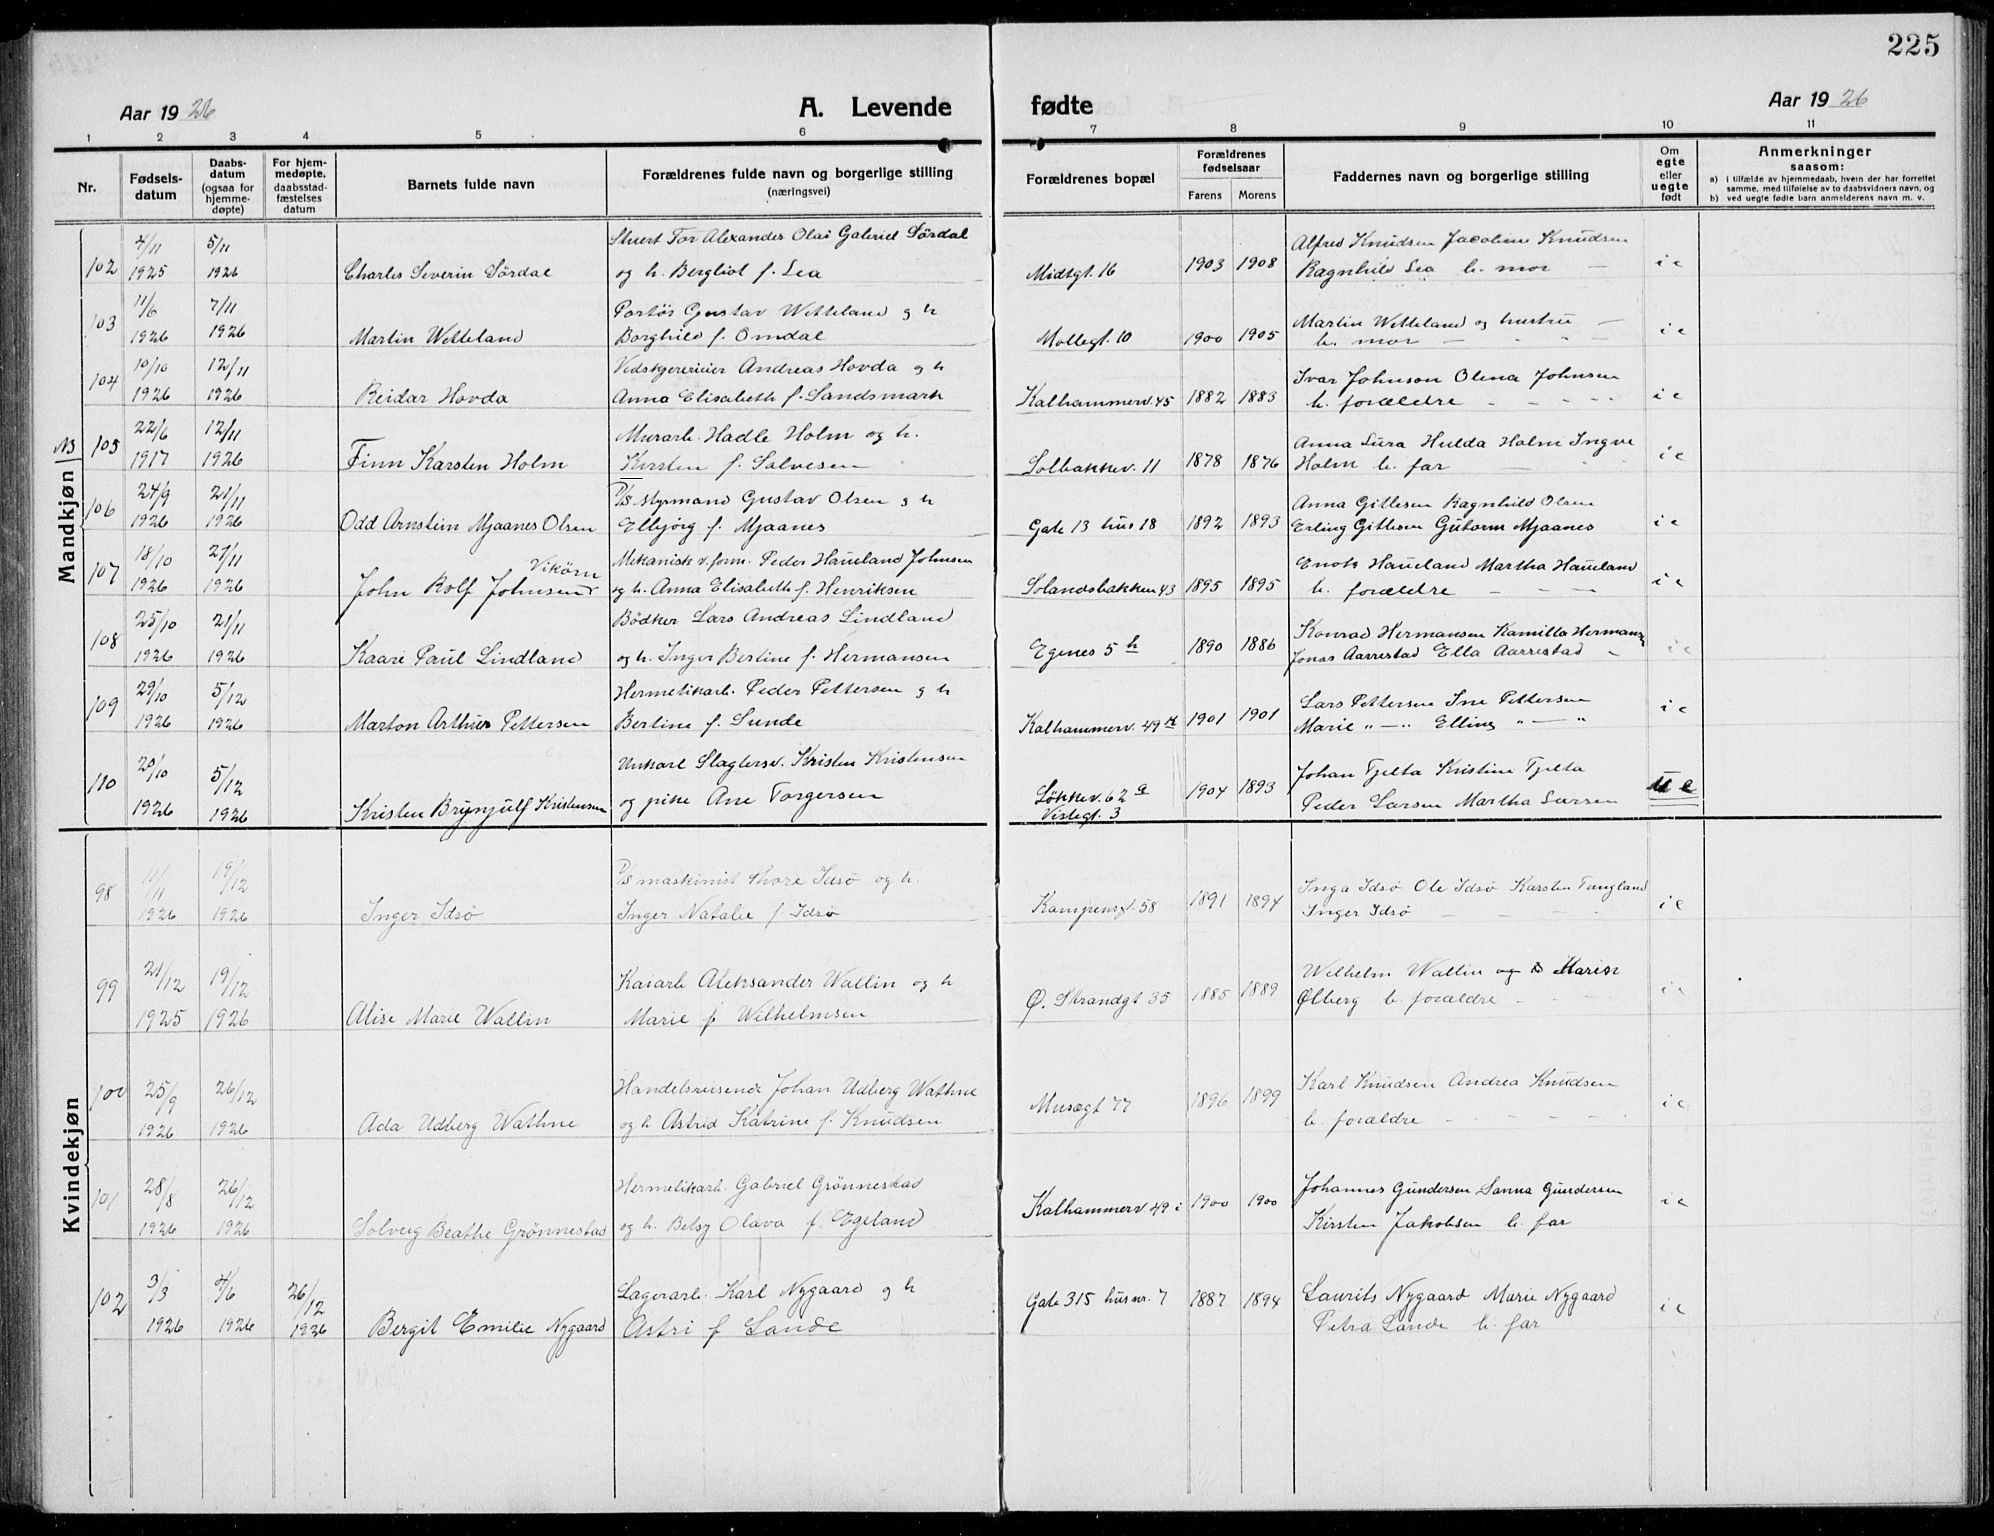 225
Aar 1926 A. Levende fødte Aar 1926
1 2 3 4 5 6 7 8 9 10 11
Nr. Fødselsdatum Daabsdatum (ogsaa for hjemmedøpte) For hjemmedøpte. daabsstadfæstelses datum Barnets fulde navn Forældrenes fulde navn og borgerlige stilling (næringsvei) Forældrenes bopæl Forældrenes fødselsaar Farens Morens Faddernes navn og borgerlige stilling Om egte eller uegte født Anmerkninger saasom:
a) i tilfælde av hjemmedaab, hvem der har forrettet samme, med tilføielse av to daabsvidners navn, og
b) ved uegte fødte barn anmelderens navn m. v.
Mandkjøn
4/11 5/11 Stuert Tor Alexander Olai Gabriel Sördal Alfred Knudsen Jacoline Knudsen
102 1925 1926 Charles Severin Sördal og h. Bergliot f. Lea Midtgt. 16 1903 1908 Ragnhild Lea b. mor — i e
11/6 7/11 Gustav Wetteland g h Martin Wetteland og hustru —
103 1926 1926 Martin Wetteland Borghild f. Omdal Möllegt. 10 1900 1905 b. mor — i e
10/10 12/11 Andreas Hovda g h Ivar Johnson Olena Johnsen
104 1926 1926 Reidar Hovda Anna Elisabeth f. Sandsmark Kalhammerv. 45 1882 1883 b. forældre i e
NB 22/6 12/11 Murarb. Hadle Holm og h. Anna Lura Hulda Holm Ingve
105 1917 1926 Finn Karsten Holm Kirsten f. Salvesen Solbakkev. 11 1878 1876 Holm b. far — i e
24/9 21/11 D/S styrmand Gustav Olsen g h Anna Gittesen Ragnhild Olsen
106 1926 1926 Odd Arnstein Mjaanes Olsen Ellbjörg f. Mjaanes Gate 13 hus 18 1892 1893 Erling Gittesen Guttorm Mjaanes i e
18/10 27/11 Vikören Mekanisk v. form. Peder Haueland Johnsen Enok Haueland Martha Haueland
107 1926 1926 John Rolf Johnsen og h. Anna Elisabeth f. Henriksen Solandsbakken 43 1895 1895 b. forældre i e
25/10 21/11 Bödker Lars Andreas Lindland Konrad Hermansen Kamilla Hermansn
108 1926 1926 Kaare Paul Lindland og h. Inger Bertine f. Hermansen Egenes 5 h 1890 1886 Jonas Aarrestad Ella Aarrestad i e
29/10 5/12 Hermetikarb. Peder Pettersen g h Lars Pettersen Ine Pettersen
109 1926 1926 Marton Arthur Pettersen Bertine f. Sunde Kalhammerv. 49 k 1901 1901 Marie „—„ Elling „—„ i e
20/10 5/12 Unkarl Slagtersv. Kristen Kristensen Johan Tjelta Kristine Tjelta
110 1926 1926 Kristen Brynjulf Kristensen og pike Ane Torgersen Løkkev. 62 a 1904 1893 Peder Larsen Martha Larsen u e
Vistegt. 3
Kvindekjøn
11/11 19/12 D/S maskinist Thore Idsö og h. Inga Idsö Ole Idsö Karsten Tungland
98 1926 1926 Inger Idsö Inger Natalie f. Idsö Kampensgt. 58 1891 1894 Inger Idsö i e
21/12 19/12 Kaiarb Aleksander Wallin og h Wilhelm Wallin og Marie
99 1925 1926 Alise Marie Wallin Marie f Wilhelmsen Ø. Strandgt 35 1885 1889 Ølberg b. forældre i e
25/9 26/12 Handelsreisende Johan Udberg Wathne Karl Knudsen Andrea Knudsen
100 1926 1926 Ada Udberg Wathne og h Astrid Katrine f. Knudsen Musægt 77 1896 1899 b. forældre i e
28/8 26/12 Hermetikarb. Gabriel Grönnestad Johannes Gundersen Sanna Gundersen
101 1926 1926 Solveig Beathe Grönnestad og h. Betsy Olava f. Egeland Kalhammerv 49 i 1900 1900 Kirsten Jakobsen b. far i e
3/3 4/6 26/12 Lagerarb. Karl Nygaard g h Laurits Nygaard Marie Nygaard
102 1926 1926 1926 Bergit Emilie Nygaard Astri f Sande Gate 315 hus nr. 7 1887 1894 Petra Sande b. far i e